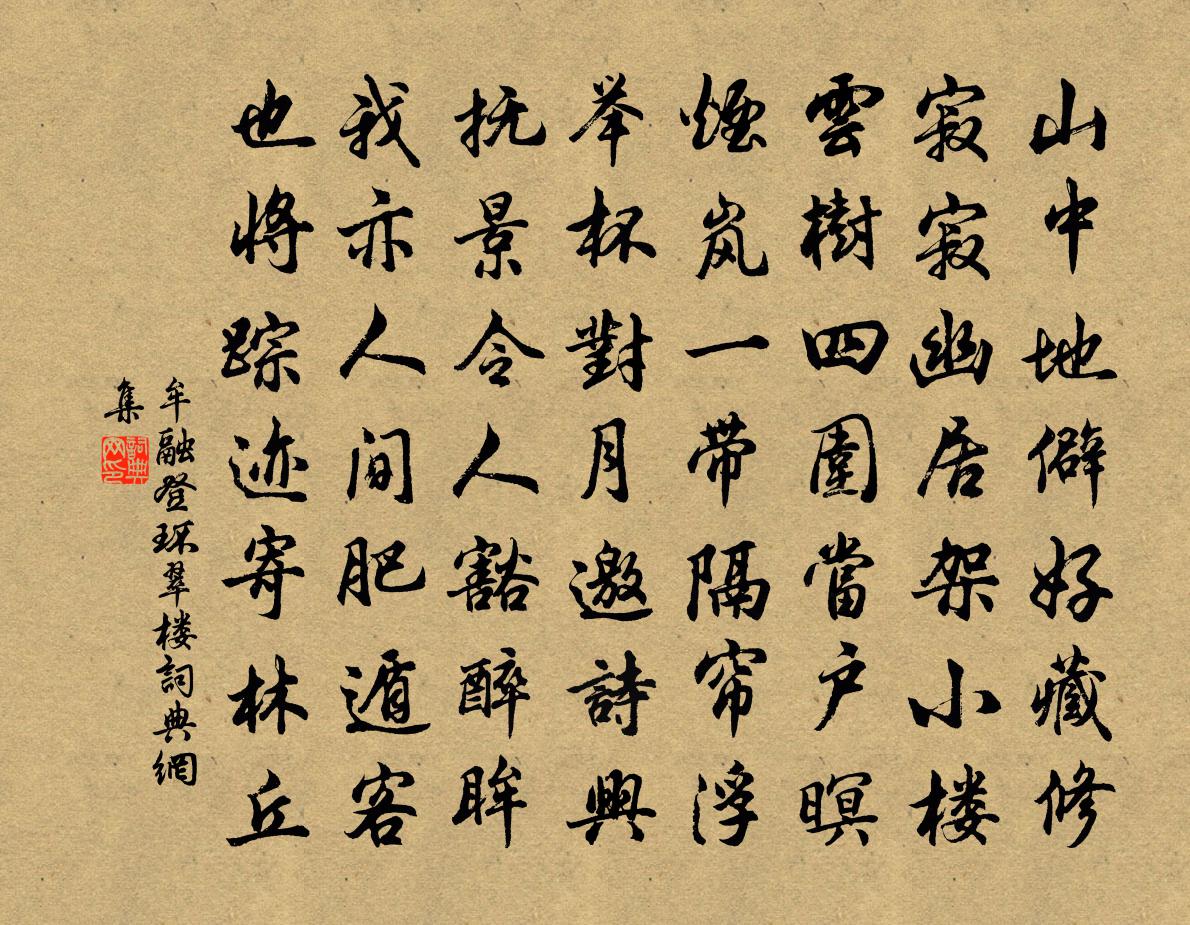 山中地僻好藏修
寂寂幽居架小楼
雲樹四圍當户暝
煙岚一带隔帘浮
举杯對月邀詩興
抚景令人豁醉眸
我亦人间肥遁客
也将踪迹寄林丘
牟融登环翠楼詞典網
集
詞典网印